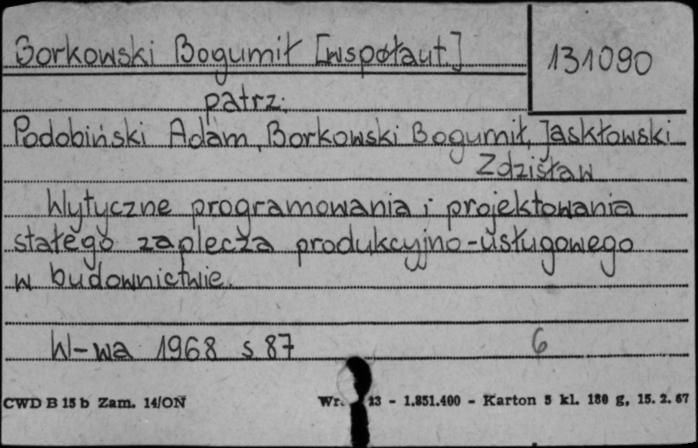 Borkowski Bogumił [współaut.]
131090
patrz:
Podobiński Adam, Borkowski Bogumił, Jaskłowski
Zdzisław
Wytyczne programowania i projektowania
stałego zaplecza produkcyjno-usługowego
w budownictwie.
W-wa 1968 s 87
6
CWD B 15 b Zam. 14/ON
Wr. 13 - 1.851.400 - Karton 5 kl. 180 g, 15. 2. 67